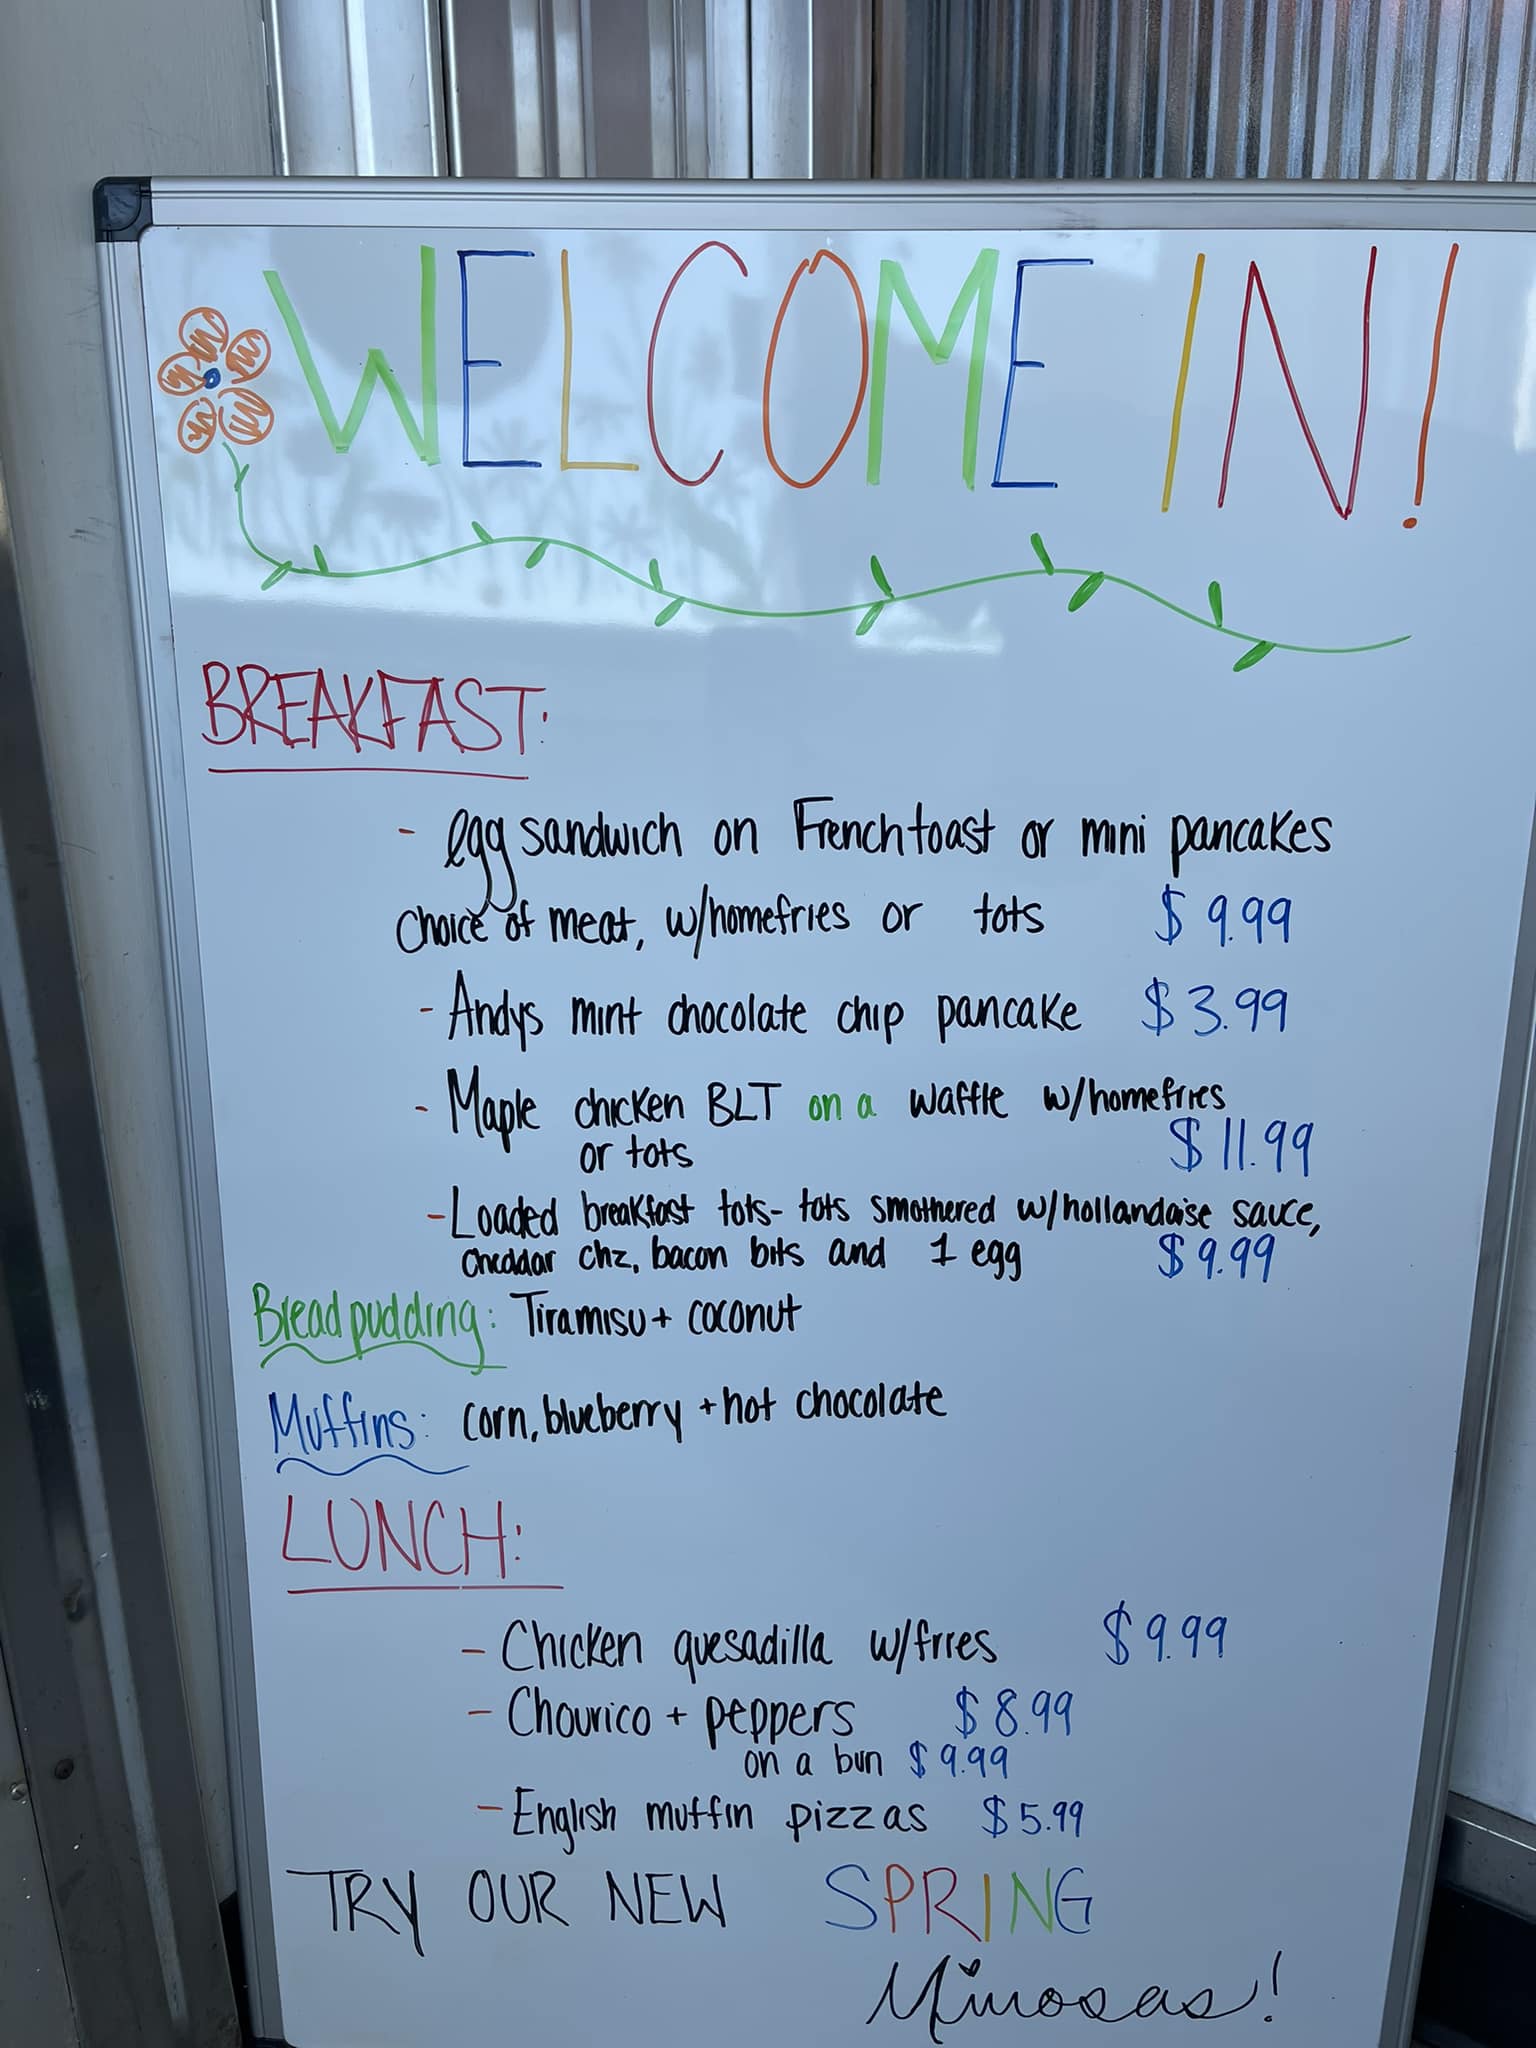 WELCOME IN!
BREAKFAST:
- egg sandwich on French toast or mini pancakes
choice of meat, w/homefries or tots $9.99
- Andys mint chocolate chip pancake $3.99
- Maple chicken BLT on a waffle w/homefries
or tots $11.99
- Loaded breakfast tots - tots smothered w/hollandaise sauce,
cheddar chz, bacon bits and 1 egg $9.99
Bread pudding: Tiramisu + coconut
Muffins: corn, blueberry + hot chocolate
LUNCH:
- Chicken quesadilla w/fries $9.99
- Chourico + peppers $8.99
on a bun $9.99
- English muffin pizzas $5.99
TRY OUR NEW SPRING
Mimosas!